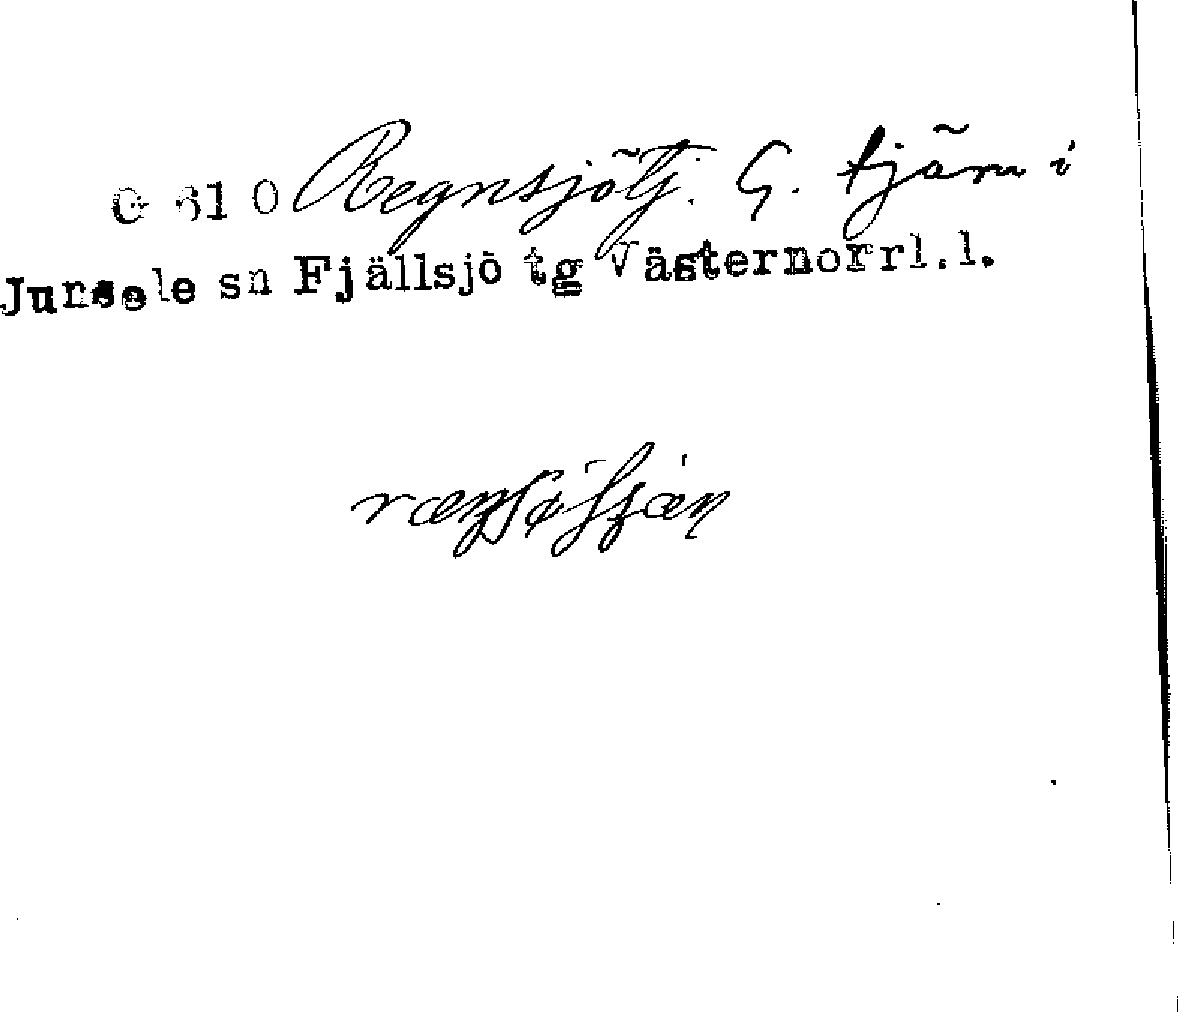 G 61 O Regnsjötj. G. tjärn i
Junsele sn Fjällsjö tg Västernorrl.l.